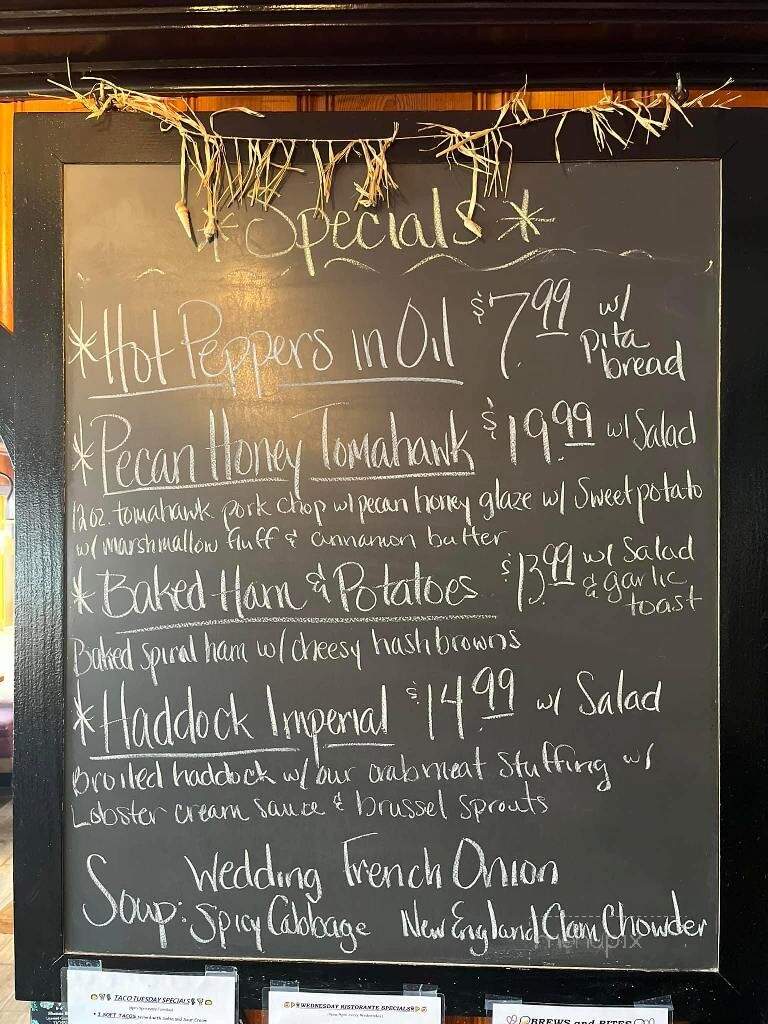 *Specials*
*Hot Peppers in Oil $7.99 w/ pita bread
*Pecan Honey Tomahawk $19.99 w/ Salad
12oz. tomahawk pork chop w/ pecan honey glaze w/ Sweet potato
w/ marshmallow fluff & cinnamon butter
*Baked Ham & Potatoes $13.99 w/ Salad & garlic toast
Baked spiral ham w/ cheesy hashbrowns
*Haddock Imperial $14.99 w/ Salad
Broiled haddock w/ our crabmeat Stuffing w/
Lobster cream sauce & brussel sprouts
Soup: Wedding French Onion
Spicy Cabbage New England Clam Chowder
menupix
TACO TUESDAY SPECIALS
WEDNESDAY RISTORANTE SPECIALS
BREWS and BITES